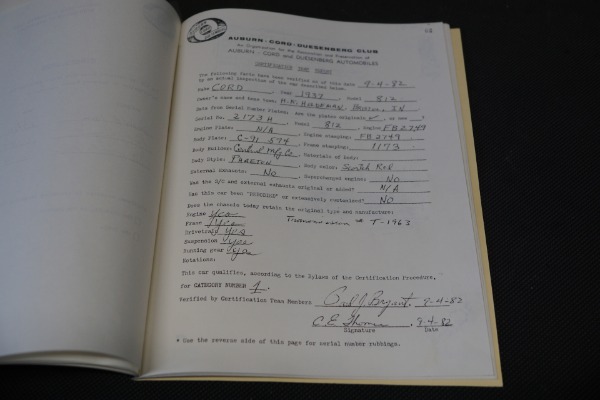 AUBURN · CORD · DUESENBERG CLUB
An Organization for the Restoration and Preservation of
AUBURN - CORD and DUESENBERG AUTOMOBILES
CERTIFICATION TEAM REPORT
The following facts have been verified as of this date 9-4-82
by an actual inspection of the car described below.
Make CORD, Year 1937, Model 812
Owner's name and home town, Boston, IN
Data from Serial Number Plates: Are the plates originals ✓, or new ?
Serial No. 2173 H, Model 812, Engine FB2749
Engine Plate: N/A, Engine stamping: FB2749
Body Plate: C-91 574, Frame stamping: 1173
Body Builder: Central Mfg Co, Materials of body:
Body Style: Phaeton, Body color: Scotch Red
External Exhausts: No, Supercharged engine: No
Was the S/C and external exhausts original or added? N/A
Has this car been or extensively customized? No
Does the chassis today retain the original type and manufacture:
Engine yes
Frame yes Transmission # T-1963
Drivetrain yes
Suspension yes
Running gear yes
Notations:
This car qualifies, according to the Bylaws of the Certification Procedure,
for CATEGORY NUMBER 1.
Verified by Certification Team Members Paul J. Bryant, 9-4-82
C. E. Thomas, 9-4-82
Signature Date
* Use the reverse side of this page for serial number rubbings.